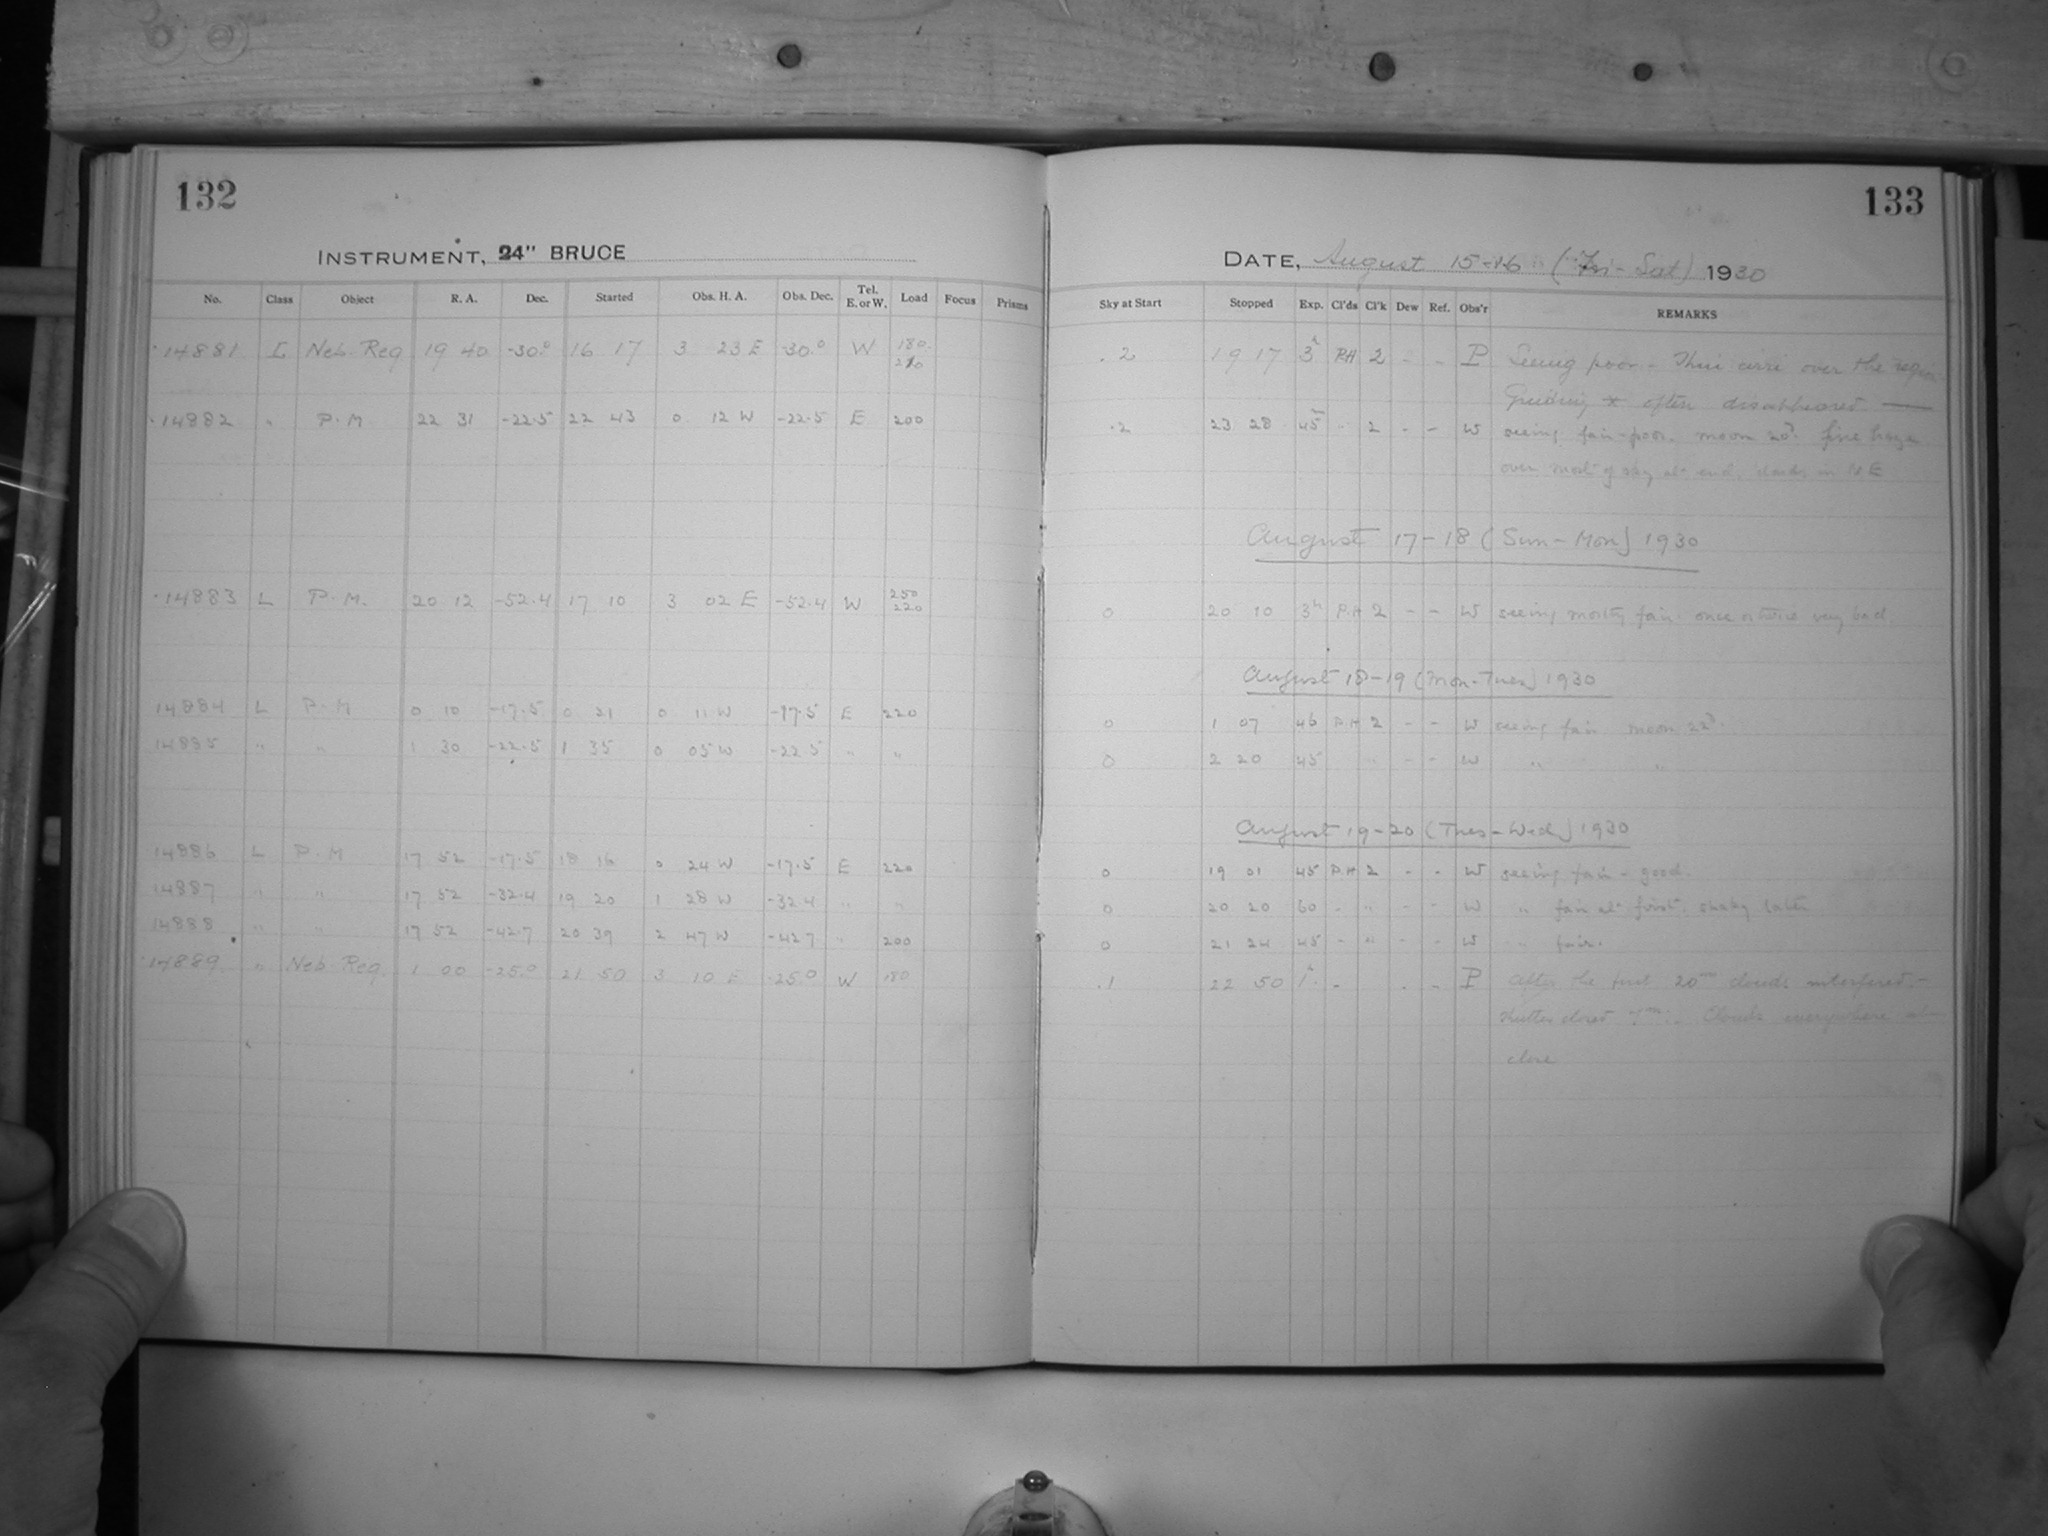 132
INSTRUMENT, 24" BRUCE
No. Class Object R. A. Dec. Started Obs. H. A. Obs. Dec. Tel. E. or W. Load Focus Prisms
14881 L Neb. Reg 19 40 -30.° 16 17 3 23 E -30.° W 180.
210
14882 " P.M 22 31 -22.5 22 43 0 12 W -22.5 E 200
14883 L P.M. 20 12 -52.4 17 10 3 02 E -52.4 W 250
220
14884 L P.M 0 10 -17.5 0 21 0 11 W -17.5 E 220
14885 " " 1 30 -22.5 1 35 0 05 W -22.5 " "
14886 L P.M 17 52 -17.5 18 16 0 24 W -17.5 E 220
14887 " " 17 52 -32.4 19 20 1 28 W -32.4 " "
14888 " " 17 52 -42.7 20 39 2 47 W -42.7 " 200
14889 " Neb. Reg. 1 00 -25.° 21 50 3 10 E -25.° W 180
133
DATE, August 15-16 (Fri-Sat) 1930
Sky at Start Stopped Exp. Cl'ds Cl'k Dew Ref. Obs'r REMARKS
.2 19 17 3h PH 2 - - P Seeing poor - Thin cirri over the region
Guiding * often disappeared —
.2 23 28 45m " 2 - - W seeing fair-poor. moon 20d. fine haze
over most of sky at end. clouds in N E
August 17-18 (Sun-Mon) 1930
0 20 10 3h P.H 2 - - W seeing mostly fair. once or twice very bad
August 18-19 (Mon-Tues) 1930
0 1 07 46 P.H 2 - - W seeing fair moon 22d.
0 2 20 45 " - - W " "
August 19-20 (Tues-Wed) 1930
0 19 01 45 P.H 2 - - W seeing fair - good.
0 20 20 60 - " - - W " fair at first. shaky later
0 21 24 45 - " - - W " fair.
.1 22 50 1h. - . - P After the first 20m clouds interfered. -
Shutter closed Clouds everywhere at
close